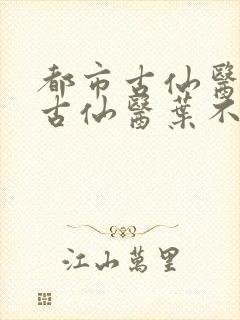 都市古仙醫
古仙醫葉不
江山萬里